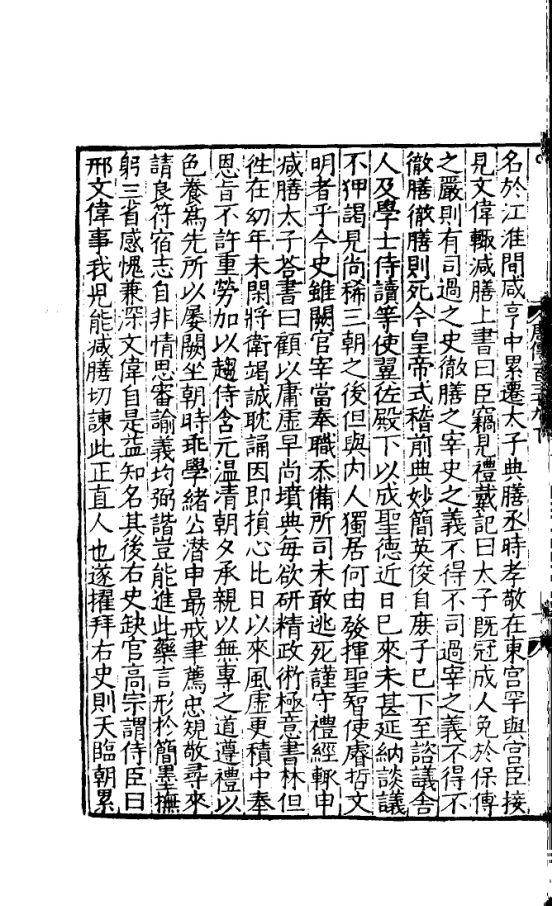 名於江淮間咸亨中累遷太子典膳丞時孝敬在東宮罕與宮臣接
見文偉輙減膳上書曰臣竊見禮戴記曰太子既冠成人免於保傅
之嚴則有司過之史徹膳之宰史之義不得不司過宰之義不得不
徹膳徹膳則死今皇帝式稽前典妙簡英俊自庶子已下至諮議舍
人及學士侍讀等使翼佐殿下以成聖德近日已來未甚延納談議
不狎謁見尚稀三朝之後但與內人獨居何由發揮聖智使睿哲文
明者乎今史雖闕官宰當奉職忝備所司未敢逃死謹守禮經輙申
减膳太子荅書曰顧以庸虛早尚墳典每欲研精政術極意書林但
徃在幼年未閑將衛竭誠耽誦因即損心比日以來風虛更積中奉
恩旨不許重勞加以趨侍含元温清朝夕承親以無專之道遵禮以
色養爲先所以屡闕坐朝時乖學緒公潜申勗戒聿薦忠規敬尋來
請良符宿志自非情思審諭義均弼諧豈能進此藥言形於簡墨撫
躬三省感愧兼深文偉自是益知名其後右史缺官高宗謂侍臣曰
邢文偉事我兒能减膳切諌此正直人也遂擢拜右史則天臨朝累